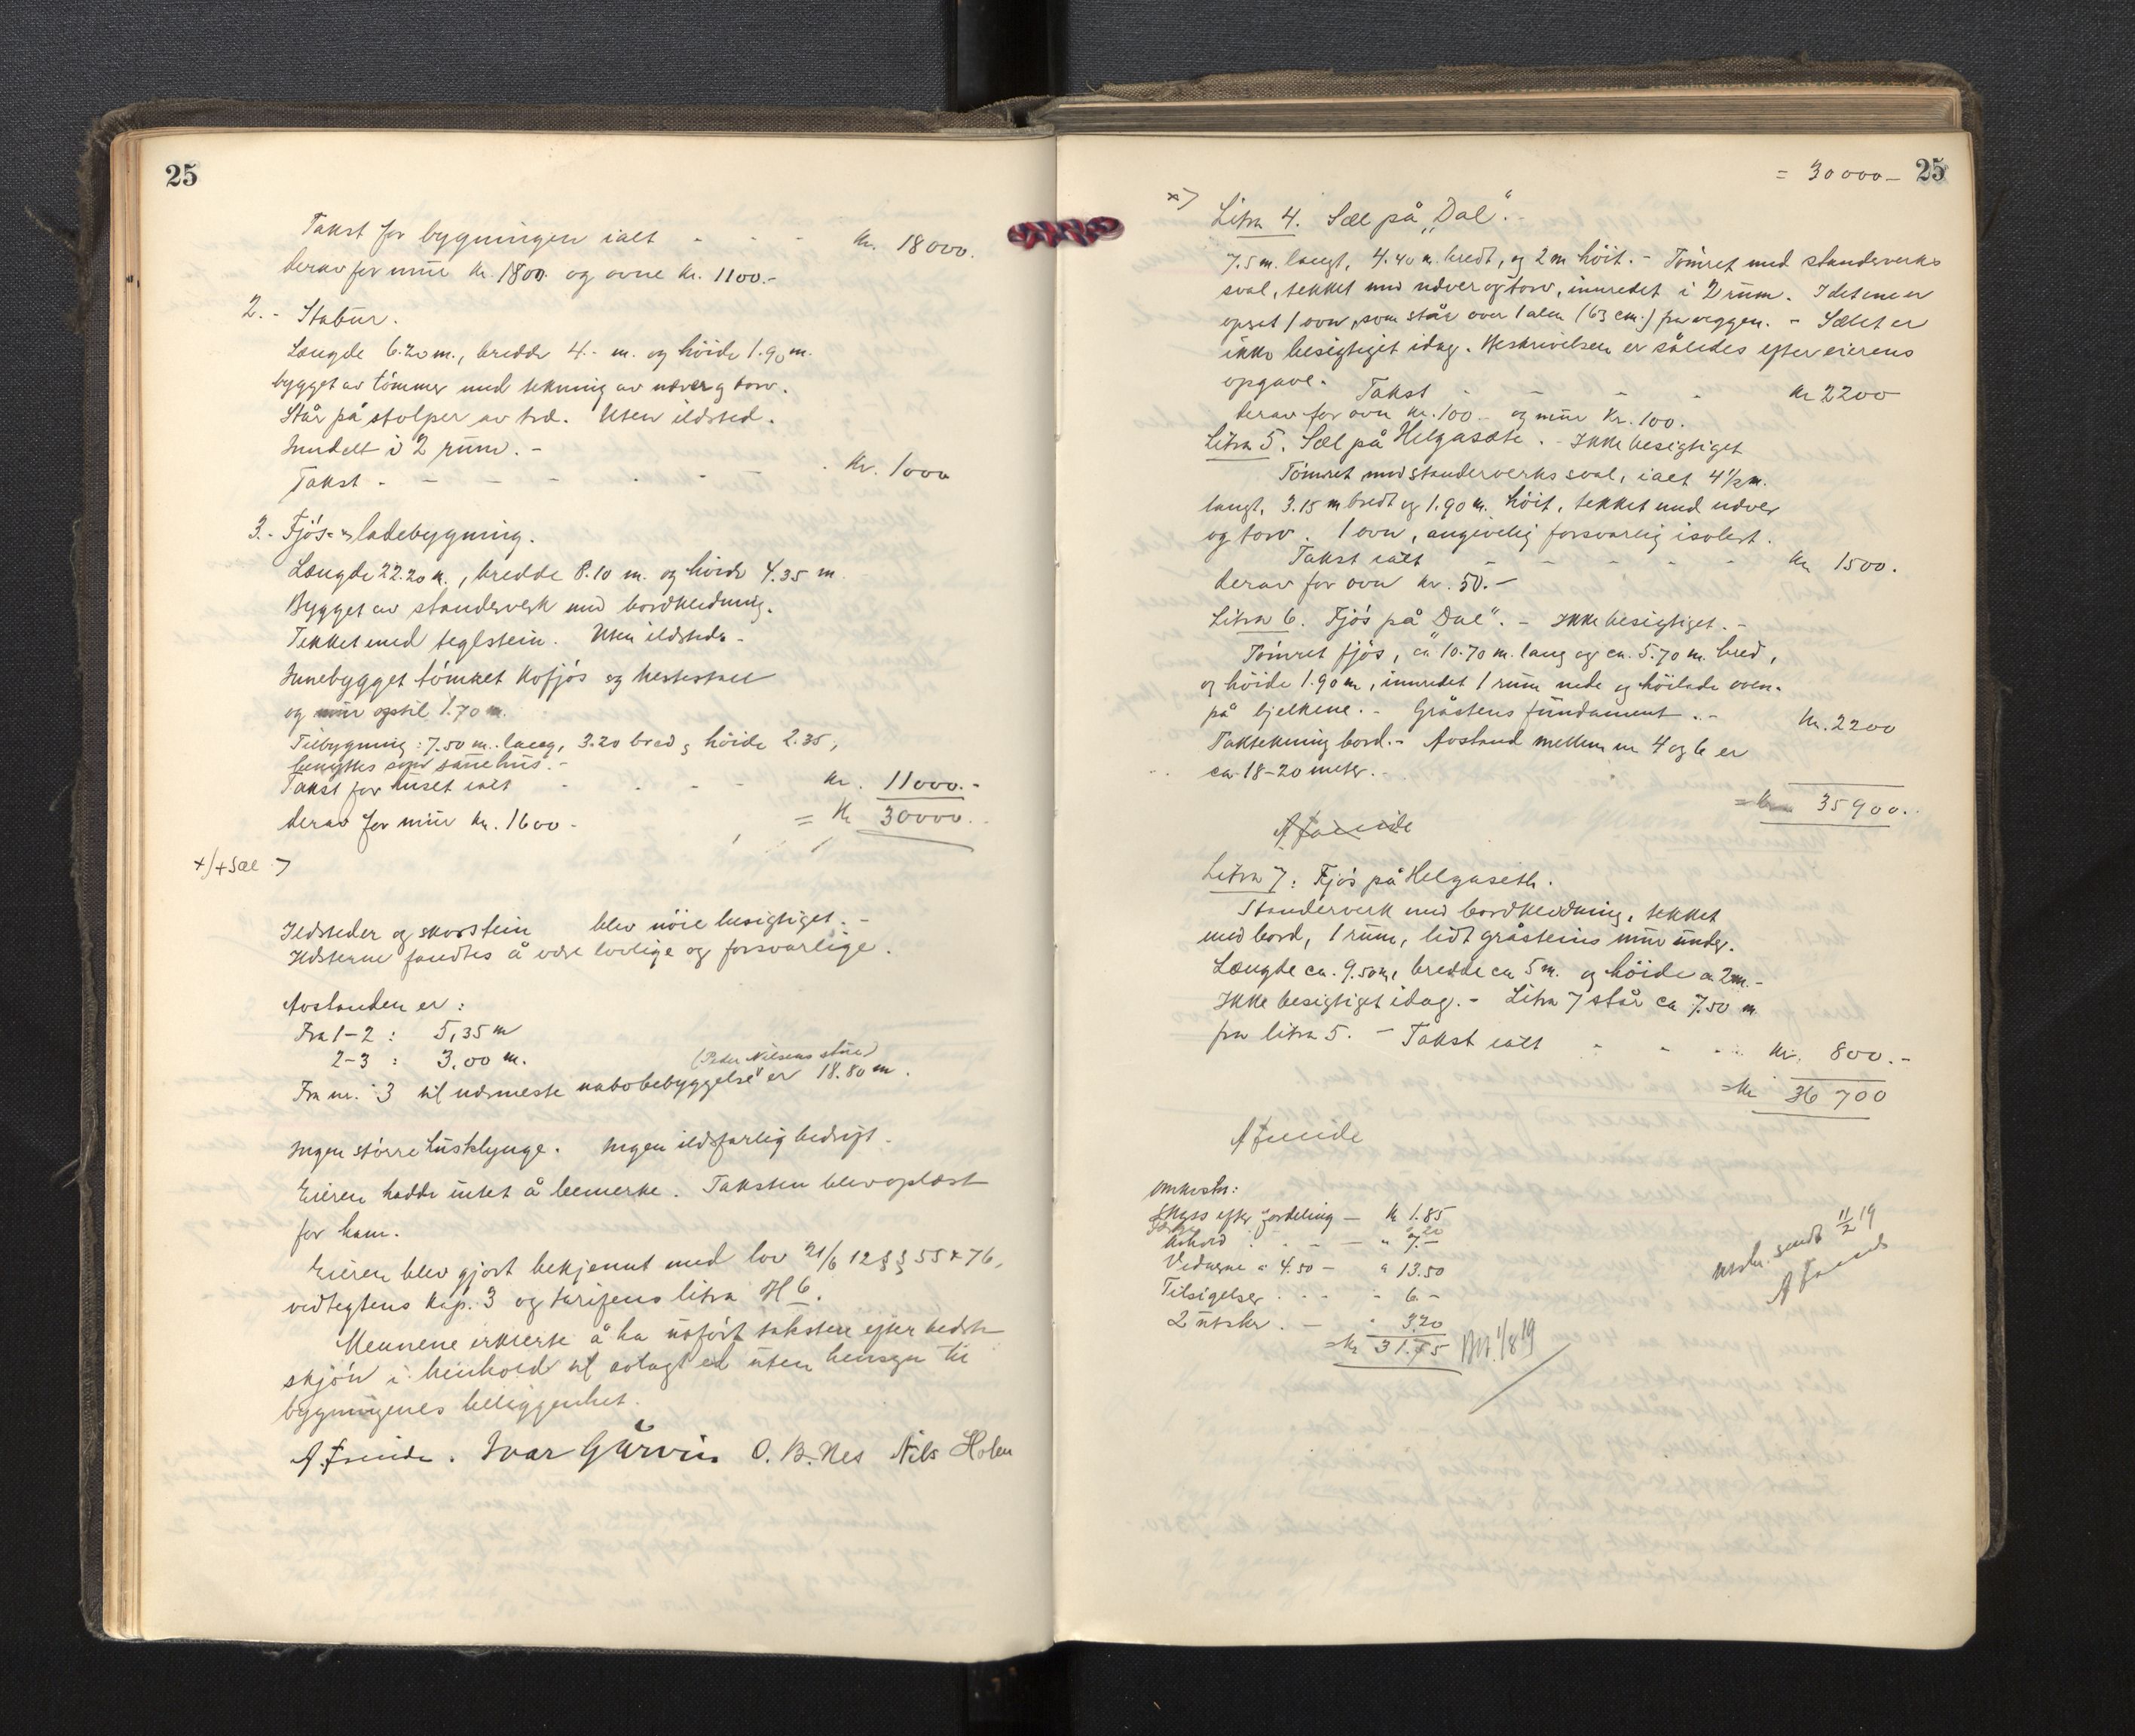 25
Takst for bygningen ialt - - - kr. 18000.
derav for mur kr. 1800. og ovne kr. 1100.-
2.- Stabur.
Længde 6.20 m., bredde 4.- m. og höide 1.90 m.
bygget av tömmer med tekning av næver og torv.
Står på stolper av træ. Uten ildsted.
Inndelt i 2 rum. -
Takst - - - - - - kr. 1000
3.- Fjös- og ladebygning.
Længde 22.20 m., bredde 8.10 m. og höide 4.35 m.
Bygget av standerverk med bordklædning.
Tekket med teglstein. Uten ildsteder -
Innebygget tömret kofjös og hestestall
og mur optil 1.70 m.
Tilbygning: 7.50 m. lang, 3.20 bred, höide 2.35,
benyttes som sauehus. -
Takst for huset ialt - - - kr. 11000.-
derav for mur kr. 1600 - = kr 30000.
+/+ Sæl >
Ildsteder og skorstein blev nöie besigtiget. -
Ildsterne fandtes å være lovlige og forsvarlige.
Avstanden er:
Fra 1-2: 5,35 m
2-3: 3,00 m.
(Peder Nilsens stue)
Fra nr. 3 til nærmeste nabobebyggelse er 18.80 m.
Ingen större husklynge. Ingen ildsfarlig bedrift -
Eieren hadde intet å bemerke. Taksten blev oplæst
for ham.
Eieren blev gjort bekjennt med lov 21/6 12 §§ 55 & 76,
vedtegtens kap. 3 og tarifens litra H 6.
Mennene erklærte å ha utfört taksten efter bedste
skjön i henhold til avlagt ed uten hensyn til
bygningenes beliggenhet.
A Freide. Ivar Gurvin O. B. Nes Nils Holen
= 30000- 25
x)
Litra 4. Sæl på „Dal".-
7.5 m. langt, 4.40 m. bredt, og 2 m höit. - Tömret med standerverks
sval, tekket med næver og torv, innredet i 2 rum. I det ene er
opsat 1 ovn, som står over 1 alen (63 cm.) fra veggen. - Sælet er
ikke besigtiget idag. Beskrivelsen er således efter eierens
opgave. Takst - - - - kr 2200
derav for ovn kr. 100 - og mur kr. 100.
Litra 5. Sæl på Helgasæte. - Ikke besigtiget
Tömret med standerverks sval, ialt 4 1/2 m.
langt, 3.15 m bredt og 1.90 m. höit, tekket med næver
og torv. 1 ovn, angivelig forsvarlig isolert.
Takst ialt - - - - - kr 1500.
derav for ovn kr. 50. -
Litra 6. Fjös på „Dal". - Ikke besigtiget. -
Tömret fjös, ca 10.70 m. lang og ca. 5.70 m. bred,
og höide 1.90 m, innredet 1 rum nede og höilade oven-
på bjelkene. - Gråstens fundament. - kr. 2200
Taktekning bord. - Avstand mellem nr 4 og 6 er
ca. 18-20 meter. -
= kr 35900.
A Freide
Litra 7: Fjös på Helgaseth.
Standerverk med bordklædning, tekket
med bord, 1 rum, lidt gråsteins mur under.
Længde ca. 9.50 m, bredde ca 5 m. og höide ca 2 m.-
Ikke besigtiget idag. - Litra 7 står ca 7.50 m
fra litra 5. - Takst ialt - - - kr. 800.-
= kr 36700
A Freide
Omkostn:
Skyss efter fordeling - kr 1.85
Vidnerne à 4.50 - " 13.50
Tilsigelser - - " 6.-
2 utskr. - " 3.20
= kr 31.75 Bet. 1/8 19
Utskr. sendt 11/2 19
A Freide